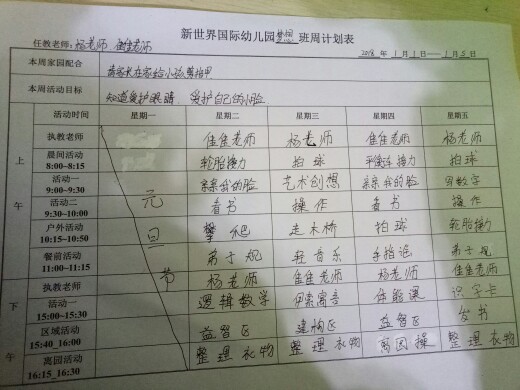 新世界国际幼儿园梦想班周计划表
任教老师：杨老师 佳佳老师 2018年1月1日—1月5日
本周家园配合 请家长在家给小孩剪指甲
本周活动目标 知道爱护眼睛、爱护自己的小脸
活动时间 星期一 星期二 星期三 星期四 星期五
上午
执教老师 佳佳老师 杨老师 佳佳老师 杨老师
晨间活动 8:00~8:15 轮胎接力 拍球 平衡车接力 拍球
活动一 9:00~9:30 亲亲我的脸 艺术创想 亲亲我的脸 写数字
活动二 9:30~10:00 看书 操作 看书 操作
户外活动 10:15~10:50 攀爬 走木桥 拍球 轮胎接力
餐前活动 11:00~11:15 弟子规 轻音乐 手指谣 弟子规
元旦节
下午
执教老师 杨老师 佳佳老师 杨老师 佳佳老师
活动一 15:00~15:30 逻辑数学 伊索寓言 体能课 识字卡
区域活动 15:40_16:00 益智区 建构区 益智区 发书
离园活动 16:15_16:30 整理衣物 整理衣物 离园操 整理衣物